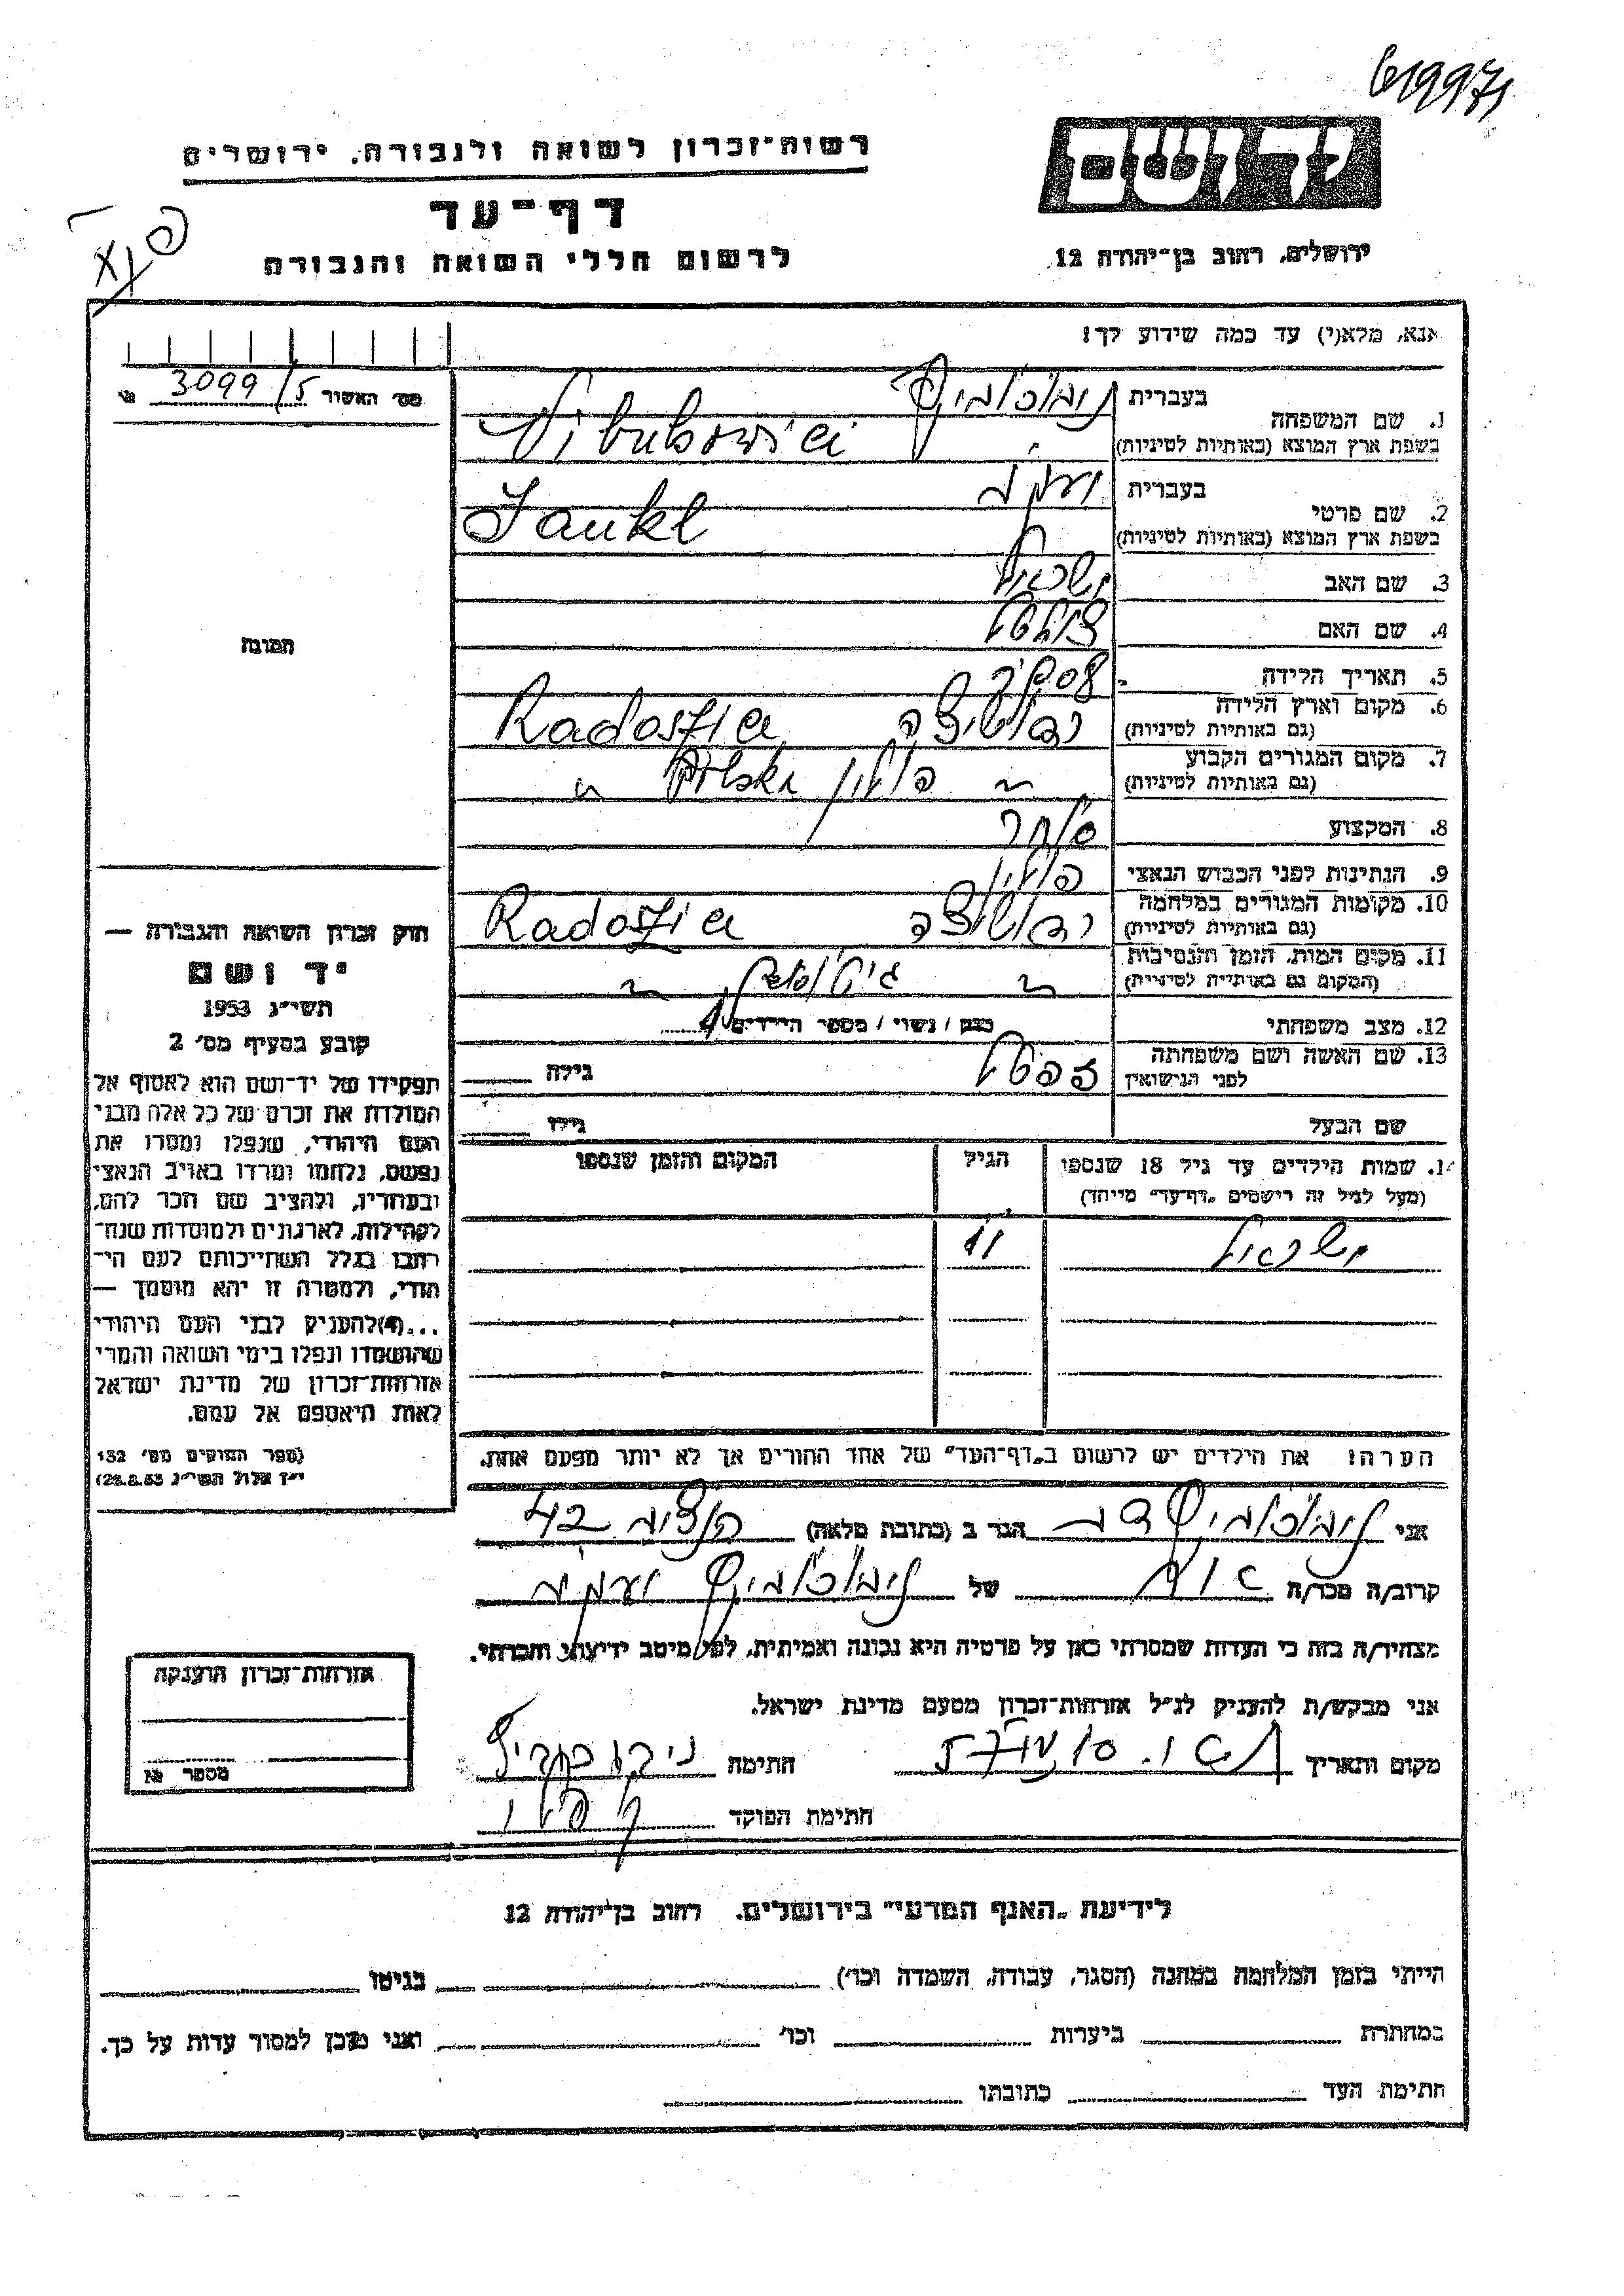 619971
רשות־זכרון לשואה ולגבורה, ירושלים
יד ושם
דף־עד
לרשום חללי השואה והגבורה
ירושלים, רחוב בן־יהודה 12
אנא, מלא(י) עד כמה שידוע לך!
מס׳ האשיר 3099/5
1. שם המשפחה
בעברית
בשפת ארץ המוצא (באותיות לטיניות)
2. שם פרטי
בעברית יעקב
בשפת ארץ המוצא (באותיות לטיניות) Jankl
3. שם האב ישראל
4. שם האם
5. תאריך הלידה
6. מקום וארץ הלידה
(גם באותיות לטיניות) Radoszica
7. מקום המגורים הקבוע
(גם באותיות לטיניות) פולין Polska
8. המקצוע סוחר
9. הנתינות לפני הכבוש הנאצי פולין
10. מקומות המגורים במלחמה
(גם באותיות לטיניות) Radoszica
11. מקום המות, הזמן והנסיבות
(המקום גם באותיות לטיניות)
12. מצב משפחתי רווק / נשוי / מספר הילדים
13. שם האשה ושם משפחתה
לפני הנישואין
גילה
שם הבעל
גילו
14. שמות הילדים עד גיל 18 שנספו
(מעל לגיל זה רישמים „דף־עד״ מייוחד)
הגיל
המקום והזמן שנספו
ישראל 11
הערה! את הילדים יש לרשום ב„דף־העד״ של אחד ההורים אך לא יותר מפעם אחת.
תמונה
חוק זכרון השואה והגבורה —
יד ושם
תשי״ג 1953
קובע בסעיף מס׳ 2
תפקידו של יד־ושם הוא לאסוף אל
המולדת את זכרם של כל אלה מבני
העם היהודי, שנפלו ומסרו את
נפשם, נלחמו ומרדו באויב הנאצי
ובעוזריו, ולהציב שם וזכר להם,
לקהילות, לארגונים ולמוסדות שנח־
רבו בגלל השתייכותם לעם הי־
הודי, ולמטרה זו יהא מוסמך —
...(4) להעניק לבני העם היהודי
שהושמדו ונפלו בימי השואה והמרי
אזרחות־זכרון של מדינת ישראל
לאות היאספם אל עמם.
(ספר החוקים מס׳ 132
י״ז אלול תשי״ג 28.8.53)
אני הגר ב (כתובת מלאה) 42
קרוב/ה מכר/ה של יעקב
מצהיר/ה בזה כי העדות שמסרתי כאן על פרטיה היא נכונה ואמיתית, לפי מיטב ידיעתי והכרתי.
אני מבקש/ת להעניק לנ״ל אזרחות־זכרון מטעם מדינת ישראל.
מקום ותאריך
חתימה
חתימת הפוקד
אזרחות־זכרון הוענקה
מספר №
לידיעת „האגף המדעי״ בירושלים, רחוב בן־יהודה 12
הייתי בזמן המלחמה במחנה (הסגר, עבודה, השמדה וכו׳) בגיטו
במחתרת ביערות וכו׳ ואני מוכן למסור עדות על כך.
חתימת העד כתובתו